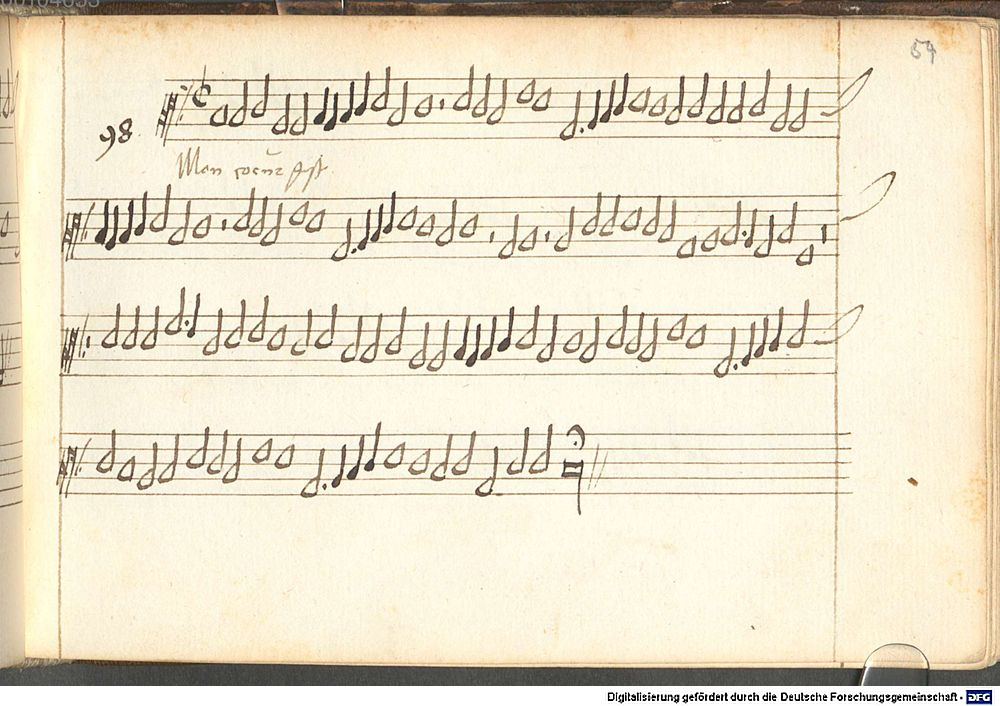 54
98
Mon coeur est
Digitalisierung gefördert durch die Deutsche Forschungsgemeinschaft - DFG